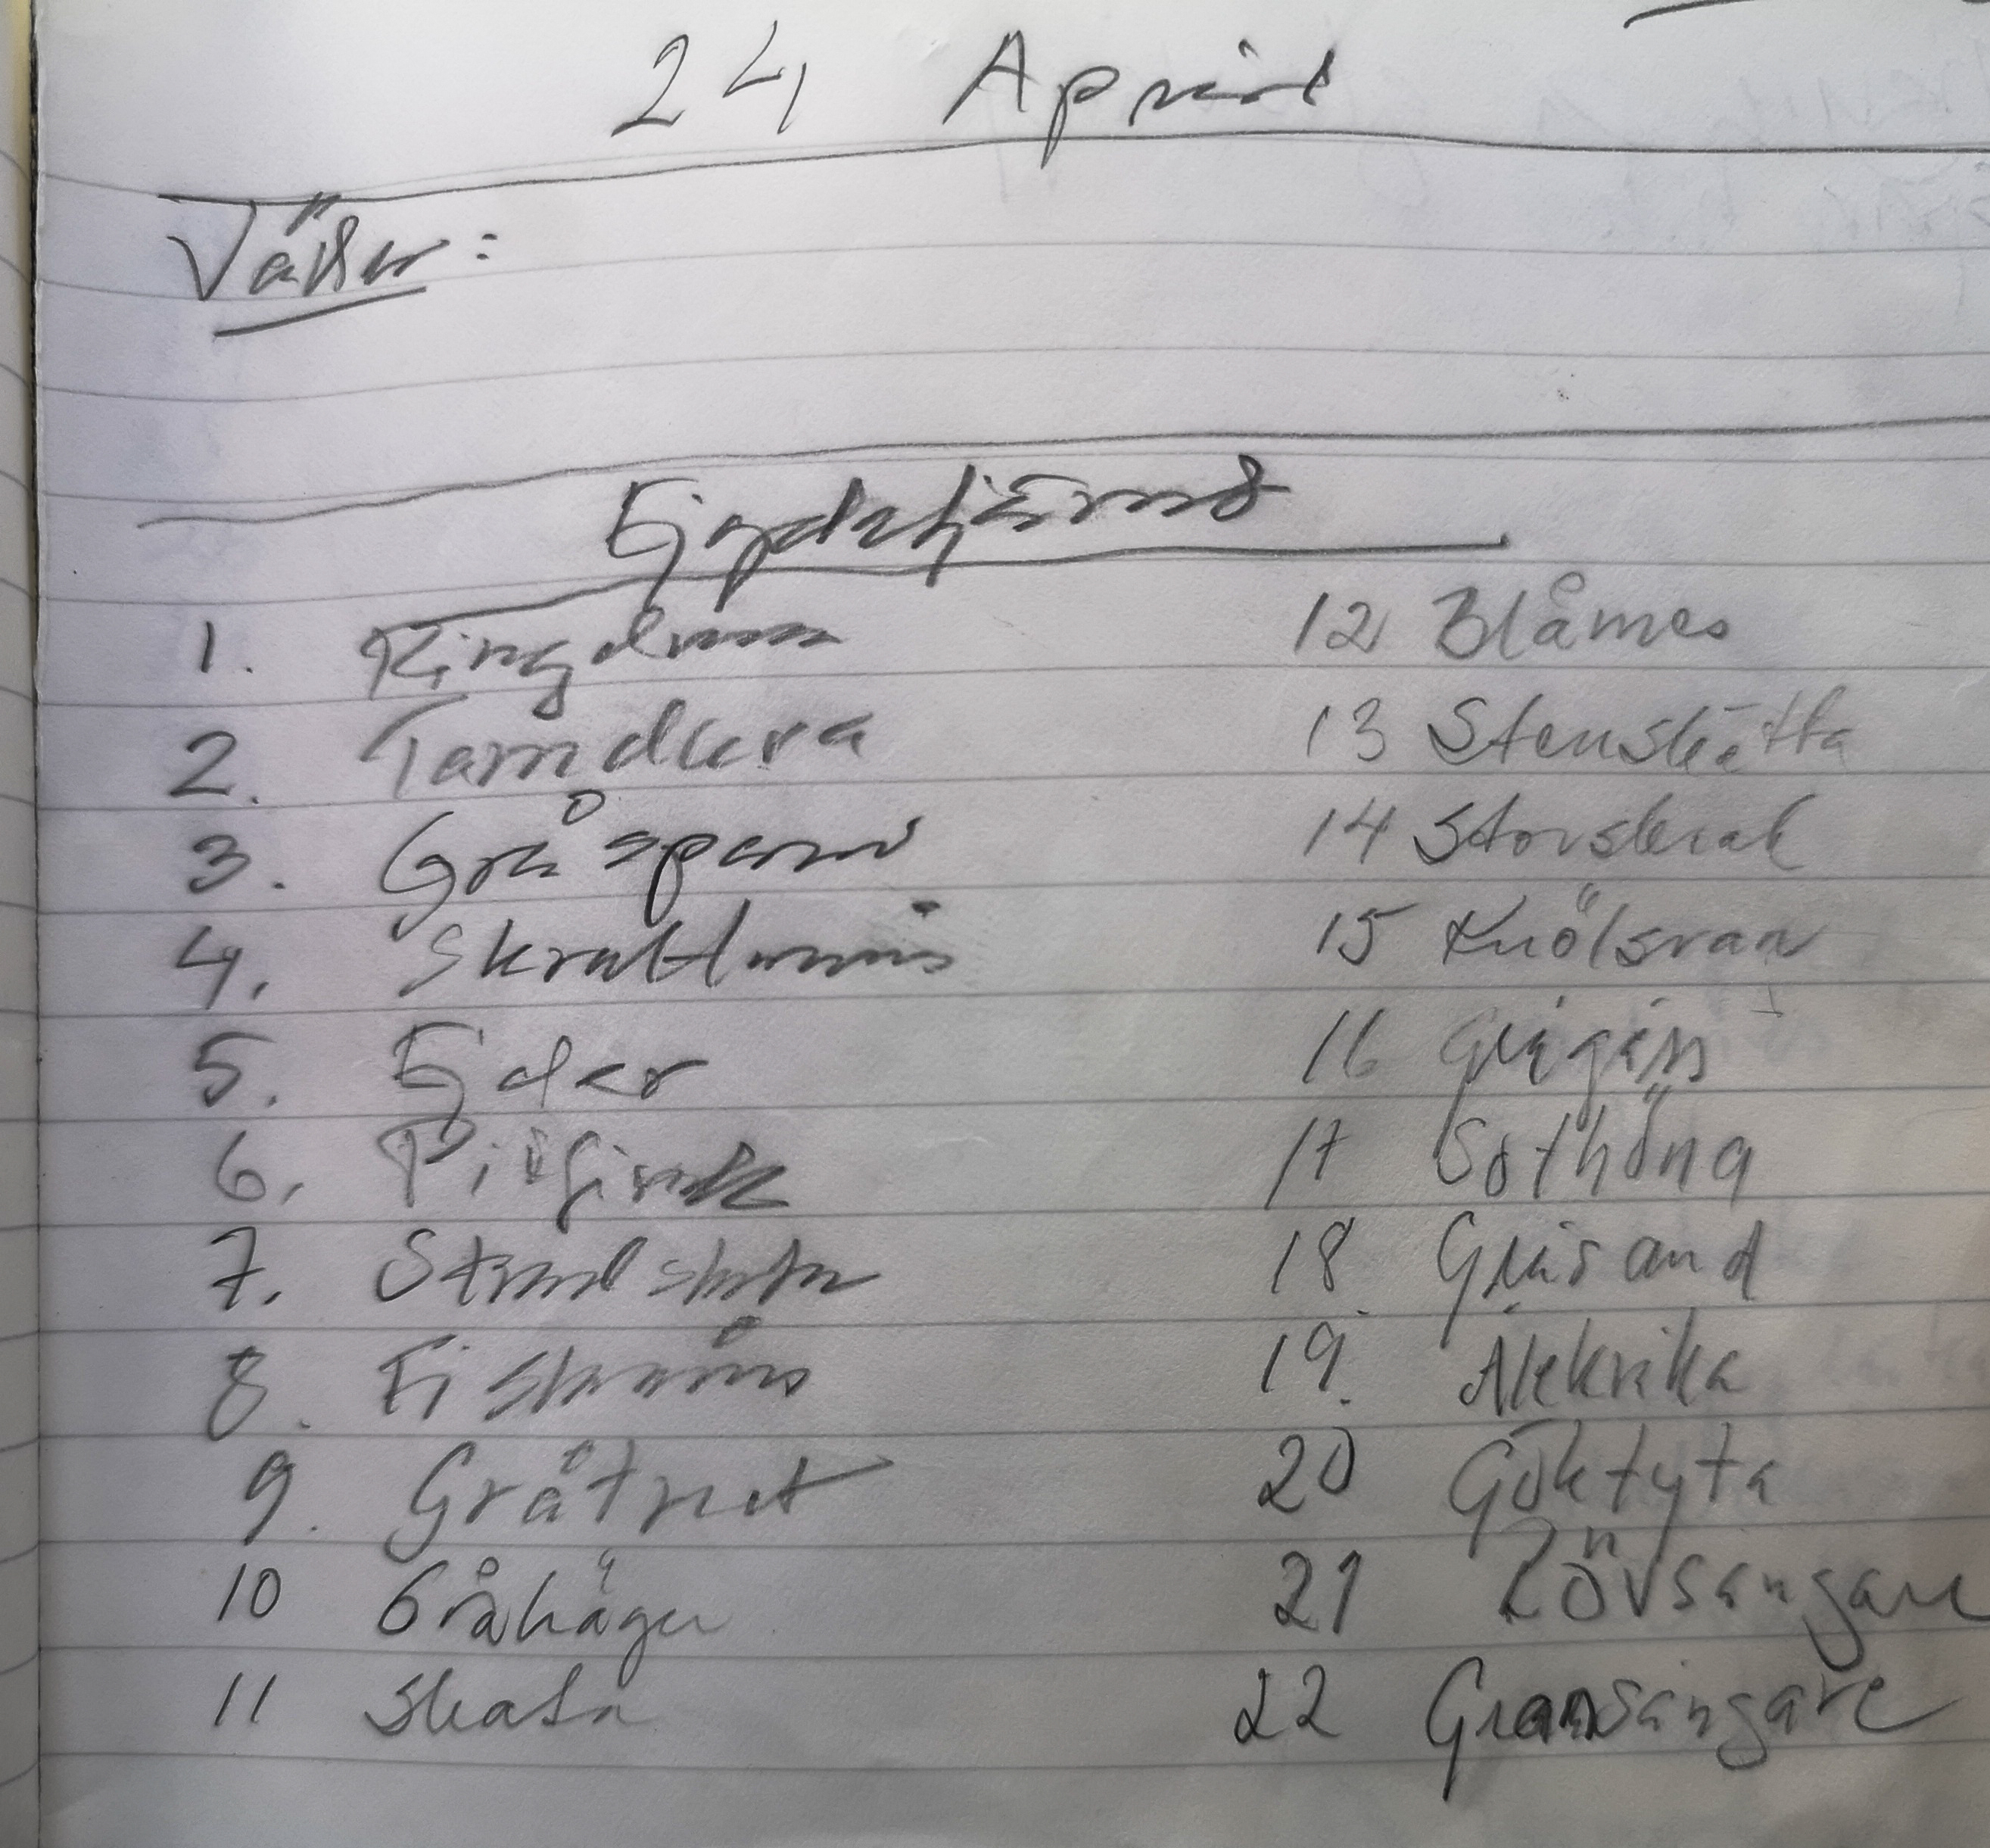 24 April
Väder:
1. Ringduva
2. Tamduva
3. Gråsparv
4. Skrattmås
5. Ejder
6. Pilfink
7. Strandskata
8. Fiskmås
9. Gråtrut
10 Gråhäger
11 Skata
12 Blåmes
13 Stenskätta
14 Storskrak
15 Knölsvan
16 Grågås
17 Sothöna
18 Gräsand
19.
20 Göktyta
21 Lövsångare
22 Gransångare